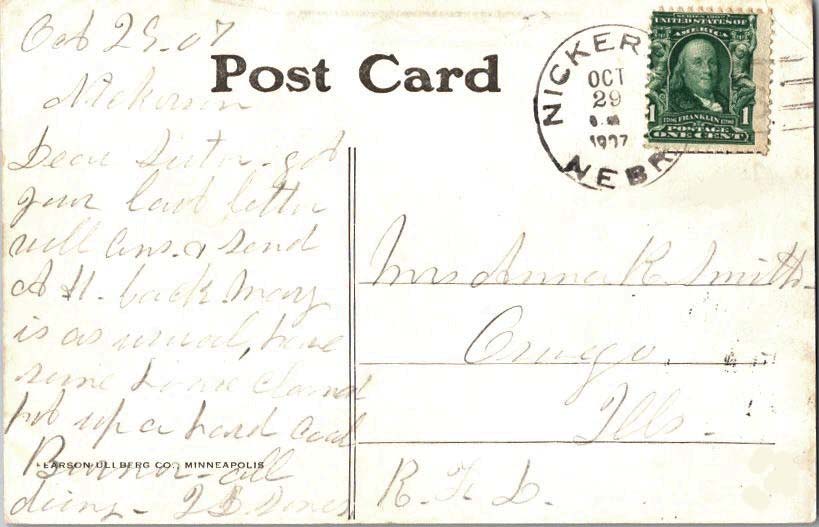 Oct 29-07
Post Card
Nickerson
NICKER
OCT
29
1907
NEBR
SERIES 1902
UNITED STATES OF
AMERICA
1 FRANKLIN 1
POSTAGE
ONE CENT
Dear Sister - got
your last letter
will ans. & send
back Mary
is as usual, have
house cleaned
put up a hard coal
Burner - all
doing -
PEARSON ULLBERG CO., MINNEAPOLIS
Mrs Anna R. Smith -
Oswego,
Ills -
R. F. D.